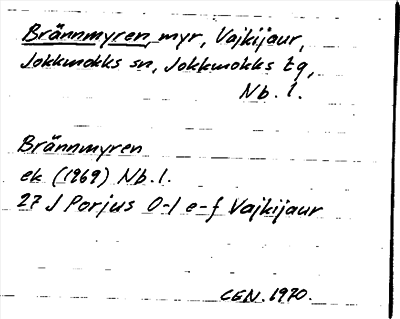 Brännmyren, myr, Vajkijaur,
Jokkmokks sn, Jokkmokks tg,
Nb. l.
Brännmyren
ek (1969) Nb. l.
27 J Porjus 0-1 e-f Vajkijaur
CEN. 1970.